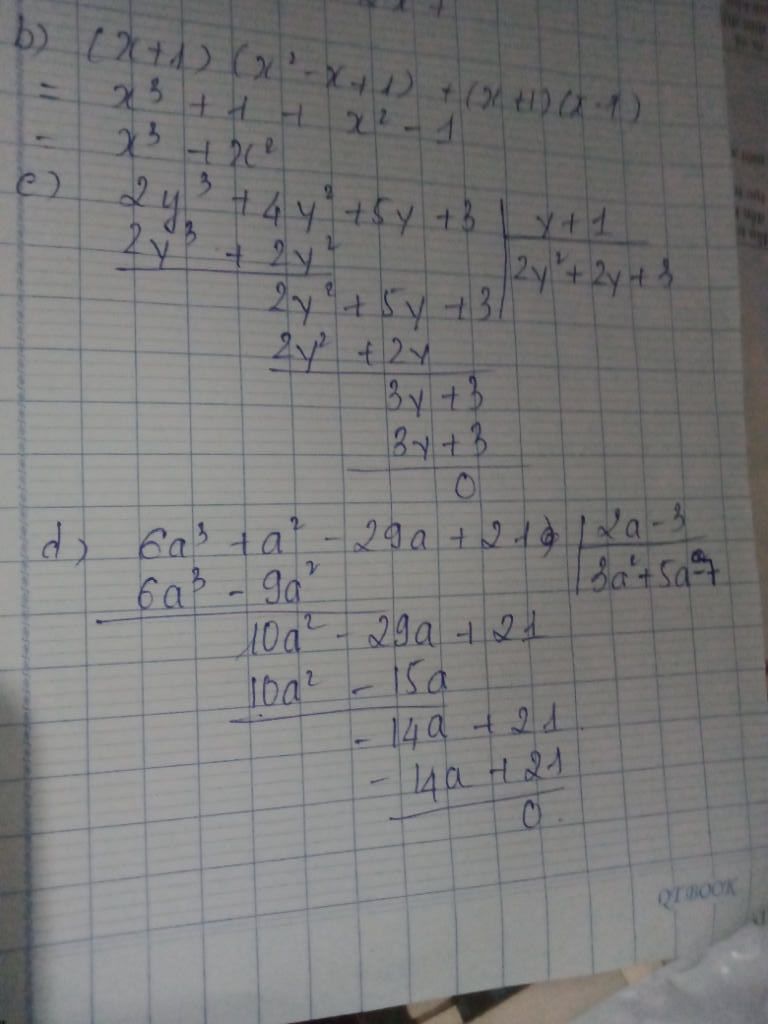 b) (x+1) (x² - x + 1) + (x+1) (x - 1)
= x³ + 1 + x² - 1
= x³ + x²
c) 2y³ + 4y² + 5y + 3 | y + 1
2y³ + 2y² | 2y² + 2y + 3
2y² + 5y + 3
2y² + 2y
3y + 3
3y + 3
0
d) 6a³ + a² - 29a + 21 | 2a - 3
6a³ - 9a² | 3a² + 5a - 7
10a² - 29a + 21
10a² - 15a
- 14a + 21
- 14a + 21
0
QTBOOK